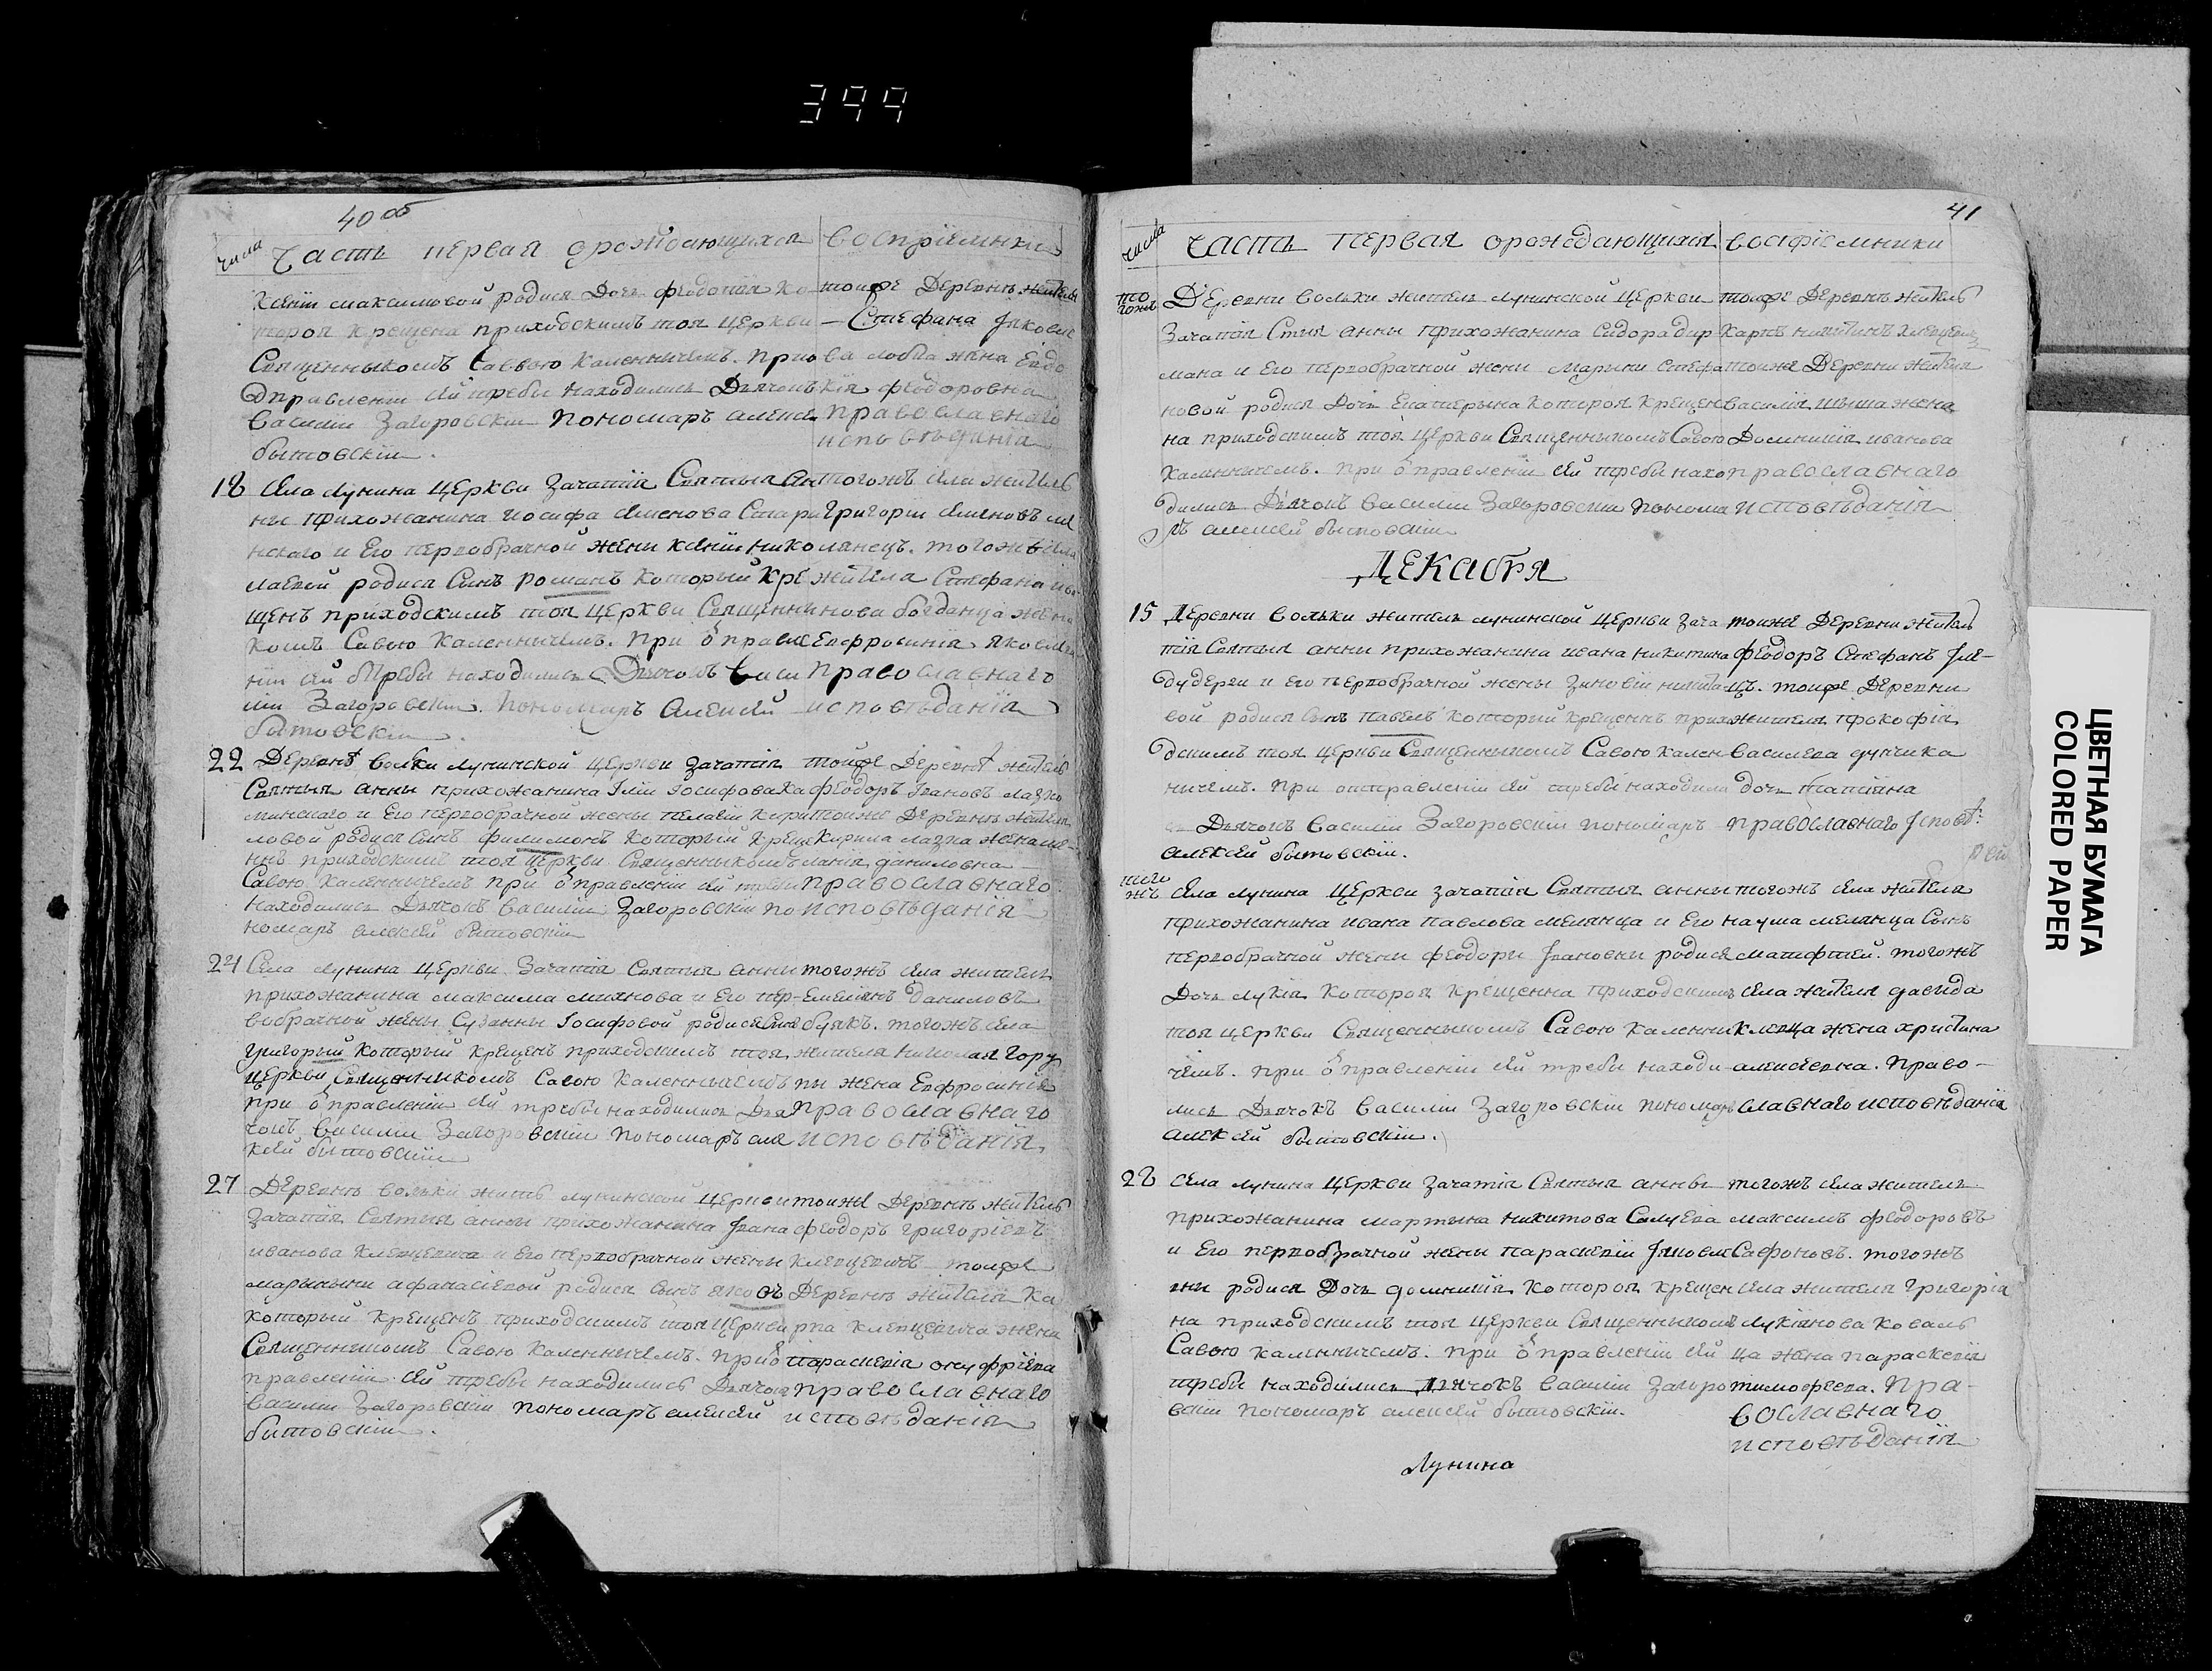 399
40 об
числа
Часть первая орождающихся
восприемники
Ксении максимовой родися Дочь феодотия ко-
тороя крещена приходскимъ тоя церкви
Священникомъ Саввою каленничемъ. при о
Јправлении сей требы находились Дьячокъ
Василии Загоровскии пономаръ алексе
бытовскіи.
тоиже Деревнѣ жителя
Стефана Јаковле
ва жена Евдо
кія феодоровна
православнаго
исповѣданія
18
Села лунина церкви зачатія Святыя Ан
ны прихожанина иосифа
нскаго и Его первобрачной жены ксении нико
лаевой родися Сынъ романъ который кре
щенъ приходскимъ тоя церкви Священни
комъ Савою каленничемъ. при ѿправле
нии сей требы находились Дьячокъ Васи
лии Загоровскіи. пономаръ Алексей
бытовскіи.
тогожъ села житель
григории
тогожъ села
жителя Стефана
нова богданца жена
Евфросинія яковлевна
православнаго
исповѣданія
22
Деревнѣ вольки лунинской церкви зачатія
Святыя анны прихожанина Іліи Іосифова ка
минскаго и Его первобрачной жены пелагіи кири
ловой родися сынъ филимонъ который креще
ннъ приходскимъ тоя церкви Священникомъ
Савою каленничемъ при ѿправлении сей требы
находились Дьячокъ василии Загоровскіи по
номаръ алексей бытовскіи
тоиже Деревнѣ житель
феодоръ Івановъ
тоиже Деревнѣ жителя
Кирила жена
ланія даниловна
православнаго
исповѣданія
24
Села лунина церкви Зачатія Святыя анны
прихожанина максима и Его пер-
вобрачной жены Сузанны Іосифовой родися Сынъ
григорый который крещенъ приходскимъ тоя
церкви Священникомъ Савою каленничемъ
при ѿправлении сей требы находились Дья
чокъ Василии Загоровскіи пономаръ але
ксей бытовскіи
тогожъ села житель
Емелиянъ даниловъ
буякъ. тогожъ села
жителя николая гору
пы жена Евфросинія
православнаго
исповѣданія
27
Деревнѣ вольки житель лунинской церкви
Зачатія Святыя анны прихожанина Јвана
иванова клещевича и Его первобрачной жены
марынны афанасіевой родися сынъ яковъ
который крещенъ приходскимъ тоя церкви
Священникомъ Савою каленничемъ. при ѿ
правлении сей требы находились Дьячокъ
василии Загоровскіи пономаръ алексей
бытовскіи.
тоиже Деревнѣ житель
феодоръ григоріевъ
клещевичъ тоиже
Деревнѣ жителя ка
рпа клещевича жена
параскевія онуфріева
православнаго
исповѣданія
41
числа
Часть первая орождающихся
воспріемники
того
жъ
Деревни вольки житель лунинской церкви
Зачатія Стыя анны прихожанина Сидора дир
мана и Его первобрачной жены марыны стефа
новой родися дочь Екатерына которая крещен
на приходскимъ тоя церкви Священникомъ Савою
каленничемъ. при ѿправлении сей требы нахо
дились Дьячокъ василии Загоровскіи понома
ръ алексей бытовскіи
тоиже Деревнѣ житель
карпъ никитинъ клещевичъ
тоиже Деревни жителя
василия жена
Домникія иванова
православнаго
исповѣданія
Декабря
15
Деревни вольки житель лунинской церкви зача
тія Святыя анны прихожанина ивана никитина
дудерги и его первобрачной жены зиновіи никита
вой родися сынъ павелъ который крещеннъ прихо
дскимъ тоя церкви Священникомъ Савою кален
ничемъ. при отправлении сей требы находили
сь Дьячокъ василии Загоровскіи пономаръ
алексей бытовскіи.
тоиже Деревни житель
феодоръ Стефанъ
цъ. тоиже Деревни
жителя прокофія
василева дунчика
дочь татіяна
православнаго Јсповѣ:
того
жъ
Села лунина церкви зачатія Святыя анны
прихожанина ивана павлова мелянца и Его
первобрачной жены феодоры Јвановны родися
Дочь лукія которая крещенна приходскимъ
тоя церкви Священникомъ Савою каленни
чемъ. при ѿправлении сей требы находи
лись Дьячокъ василии Загоровскіи пономаръ
алексей бытовскіи.
тогожъ села жителя
наума мелянца Сынъ
матифтей. тогожъ
села жителя давида
клеца жена христина
алексіевна. Право-
славнаго исповѣданія
28
Села лунина церкви зачатія Святыя анны
прихожанина мартына никитова Солуева
и Его первобрачной жены параскевіи Јаковле
вни родися Дочь домникія которая крещен
на приходскимъ тоя церкви Священникомъ
Савою каленничемъ. при ѿправлении сей
требы находились Дьячокъ василіи загоро
вскіи пономаръ алексей бытовскіи.
тогожъ села житель
максимъ феодоровъ
Сафоновъ. тогожъ
села жителя григорія
лукіянова коваль
ца жена параскевія
тимофеева. Пра-
вославнаго
исповѣданія
Лунина
ЦВЕТНАЯ БУМАГА
COLORED PAPER